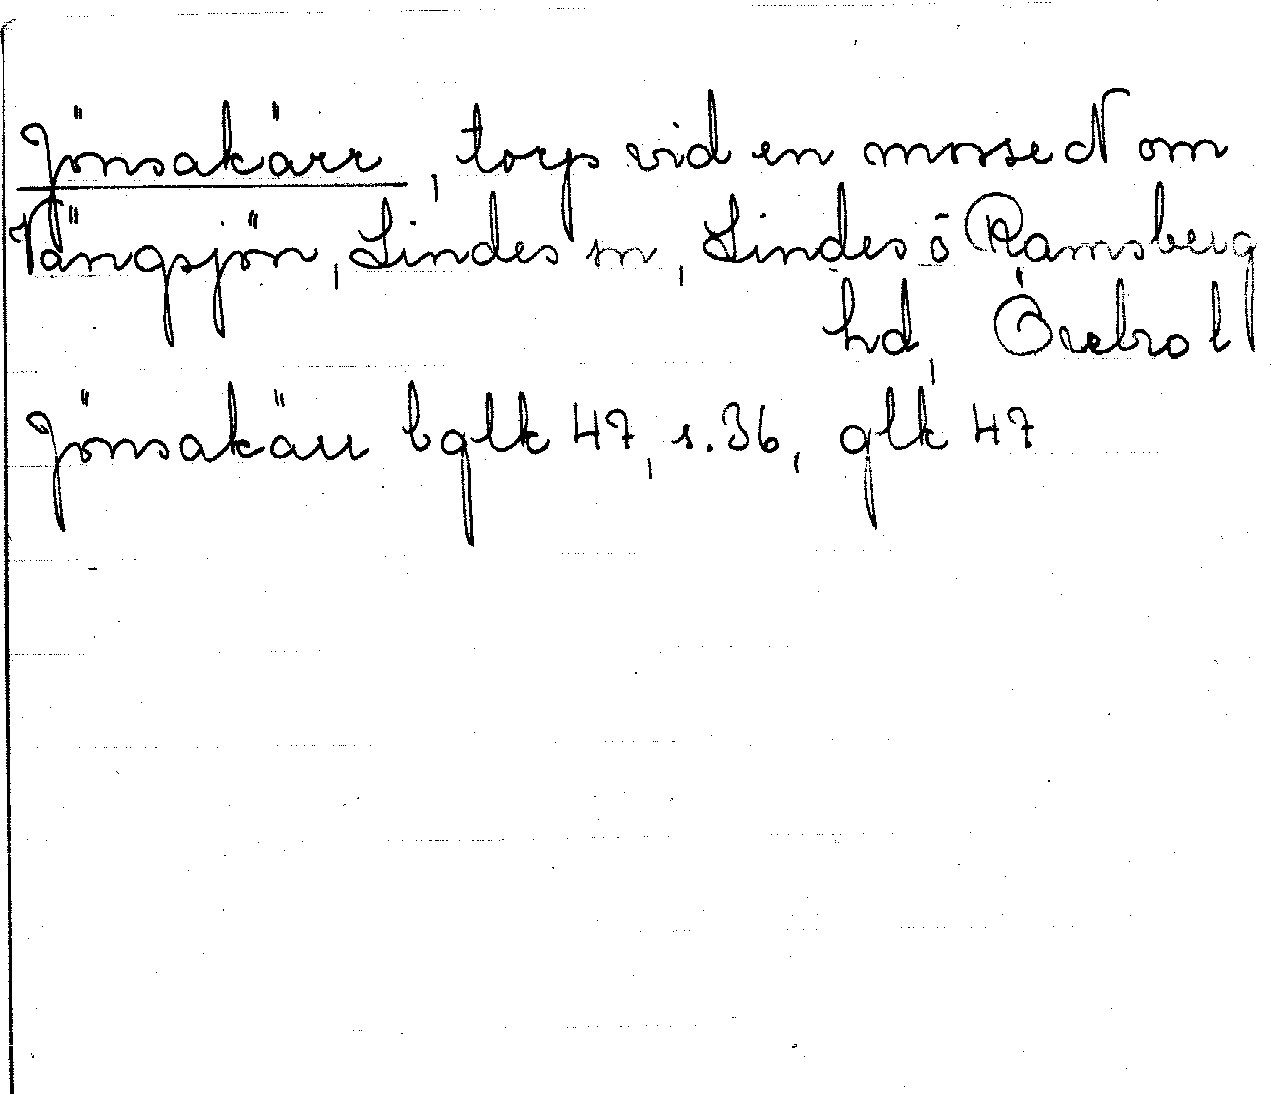 Jönsakärr, torp vid en mosse N om
Vängsjön, Lindes sn, Lindes o Ramsberg
hd, Örebro l
Jönsakärr bglk 47, s. 36, glk 47